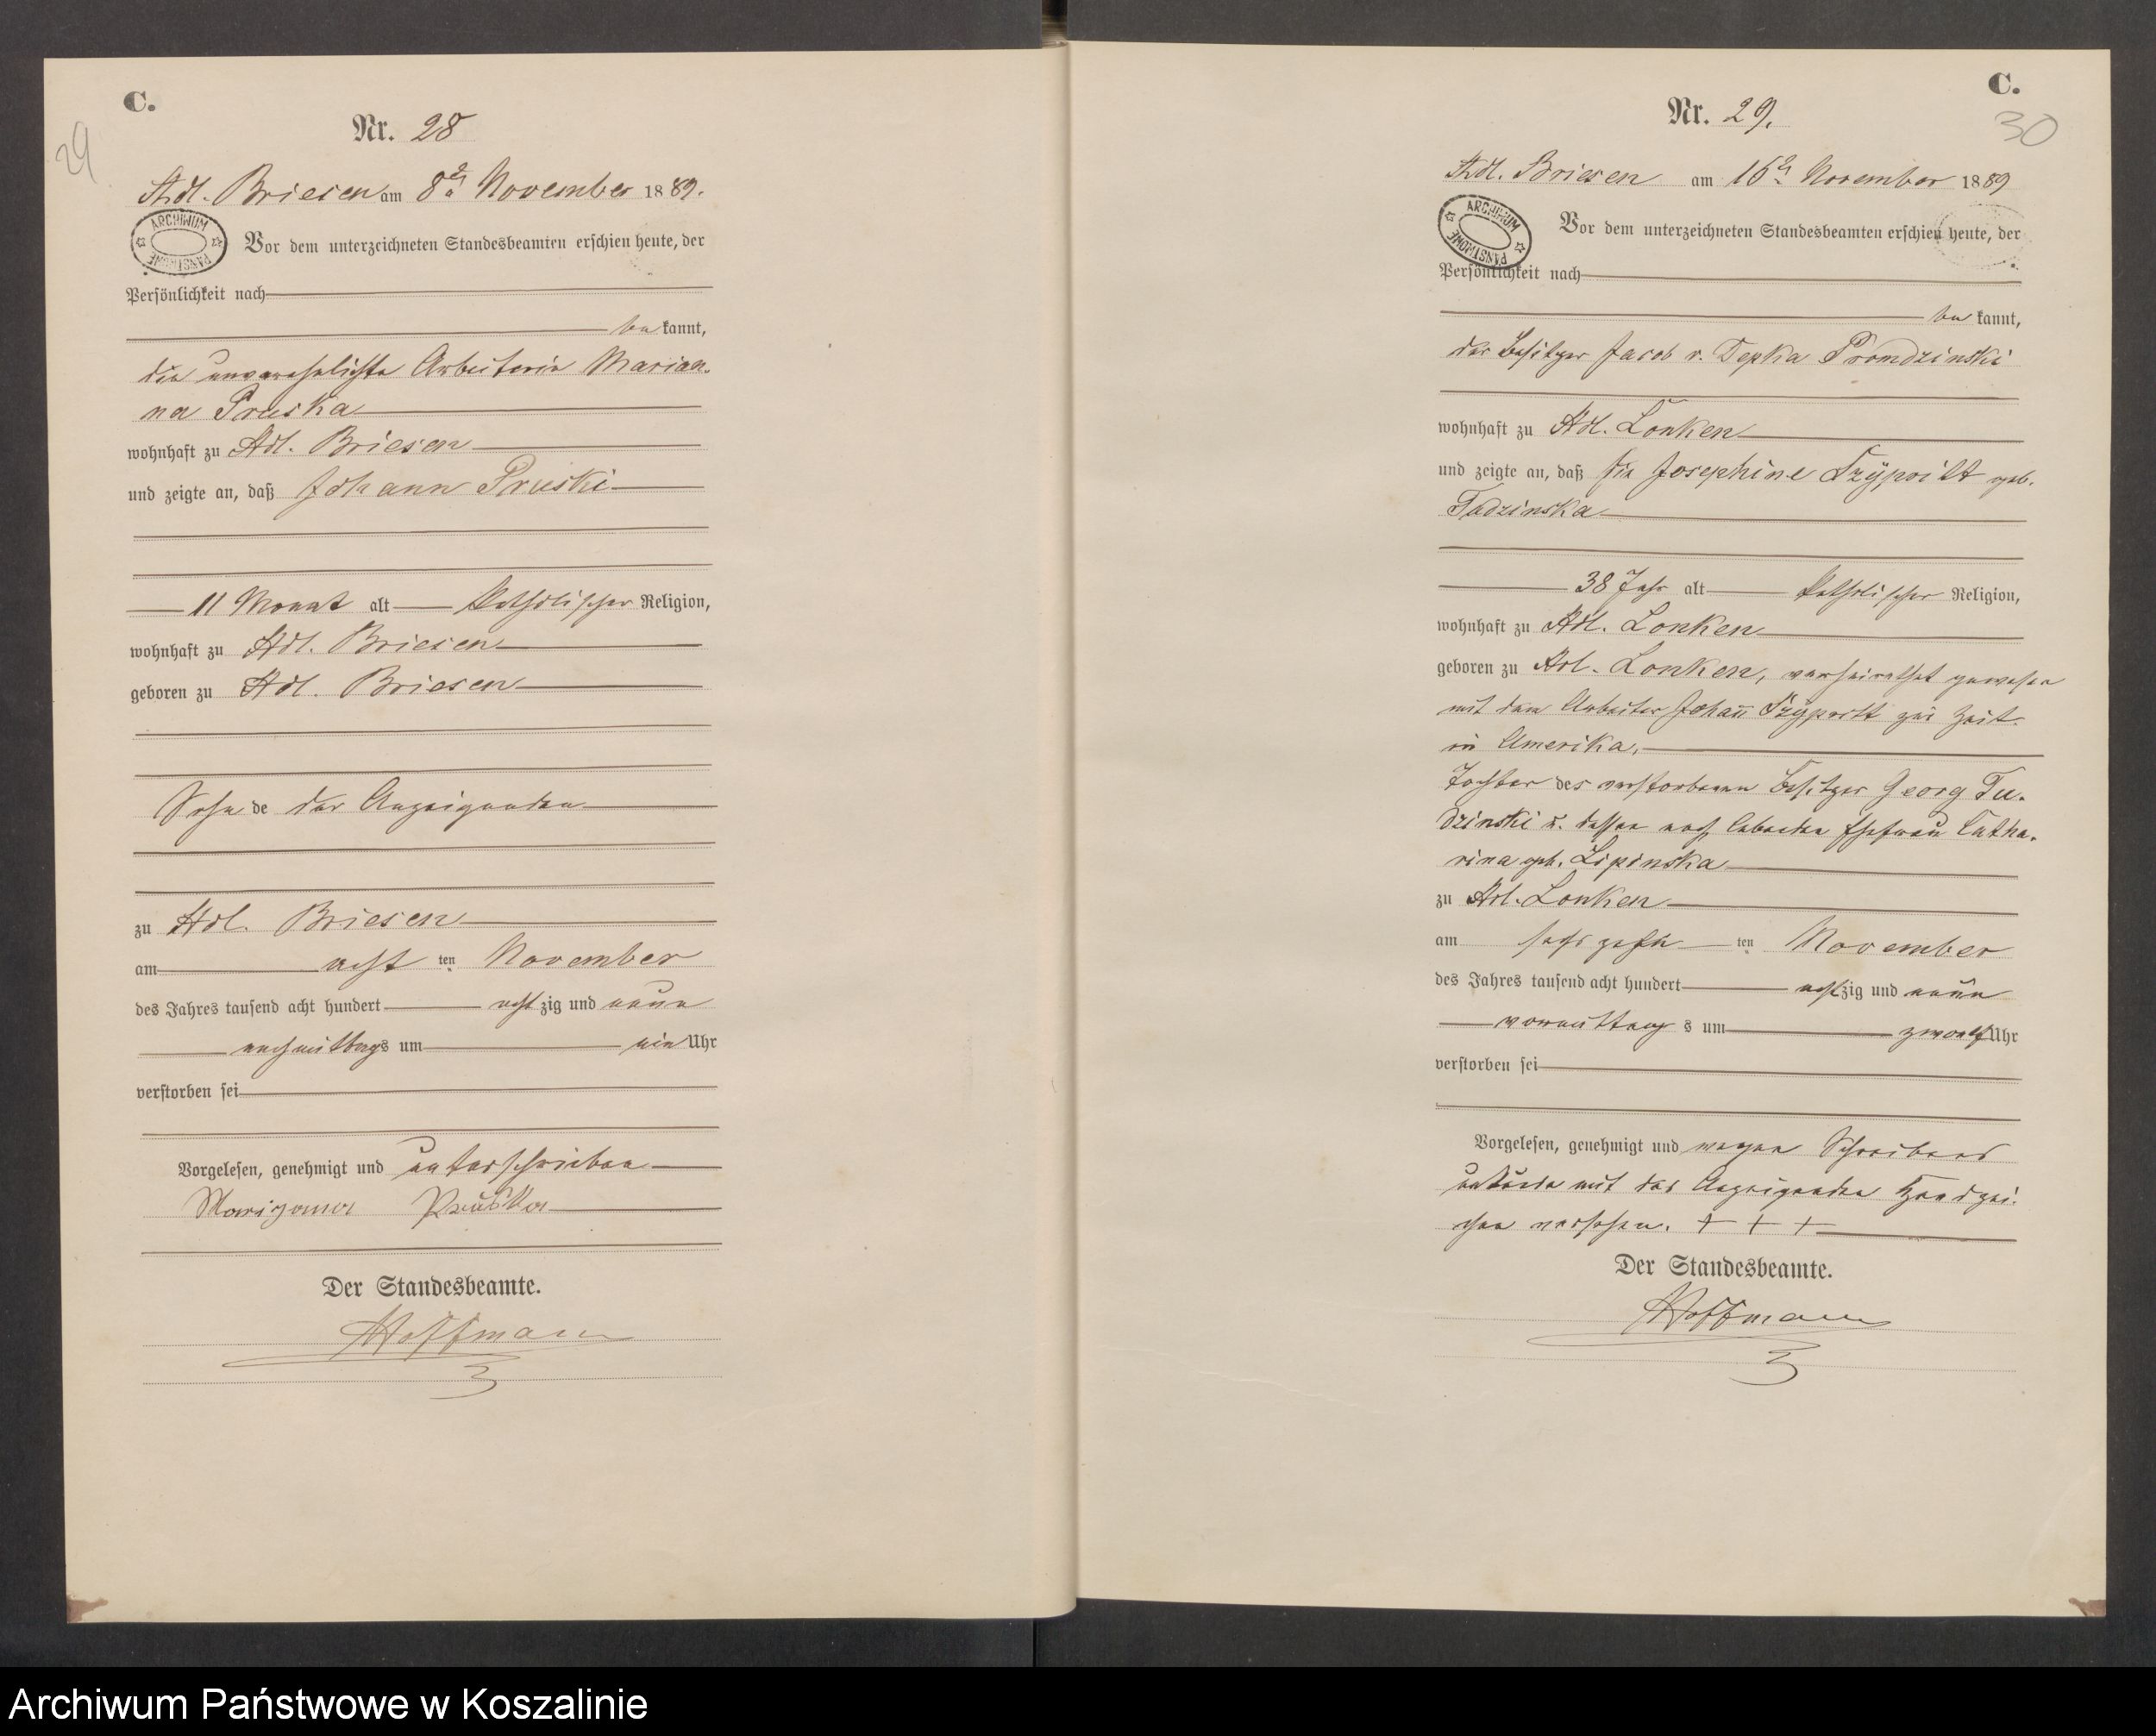 C.
29
Nr. 28
Adl. Briesen am 8ten November 1889.
ARCHIWUM PAŃSTWOWE
Vor dem unterzeichneten Standesbeamten erschien heute, der
Persönlichkeit nach
be kannt,
die unverehelichte Arbeiterin Marian-
na Pruska
wohnhaft zu Adl. Briesen
und zeigte an, daß Johann Pruski
11 Monat alt Katholischer Religion,
wohnhaft zu Adl. Briesen
geboren zu Adl. Briesen
Sohn de der Anzeigenden
zu Adl. Briesen
am acht ten November
des Jahres tausend acht hundert acht zig und neun
nachmittags um ein Uhr
verstorben sei
Vorgelesen, genehmigt und unterschrieben
Pruska
Der Standesbeamte.
Hoffmann
C.
30
Nr. 29.
Adl. Briesen am 16ten November 1889
ARCHIWUM PAŃSTWOWE
Vor dem unterzeichneten Standesbeamten erschien heute, der
Persönlichkeit nach
be kannt,
der Besitzer Jacob v. Depka Prondzinski
wohnhaft zu Adl. Lonken
und zeigte an, daß die Josephine geb.
38 Jahr alt Katholischer Religion,
wohnhaft zu Adl. Lonken
geboren zu Adl. Lonken, verheirathet gewesen
mit dem Arbeiter Johann zur Zeit
in Amerika,
Tochter des verstorbenen Besitzer Georg Tu-
dzinski u. dessen noch lebenden Ehefrau Catha-
rina geb. Lipinska
zu Adl. Lonken
am sechszehn ten November
des Jahres tausend acht hundert acht zig und neun
vormittag s um zwoelf Uhr
verstorben sei
Vorgelesen, genehmigt und wegen Schreibens
unkunde mit des Anzeigenden Handzei-
chen versehen. + + +
Der Standesbeamte.
Hoffmann
Archiwum Państwowe w Koszalinie